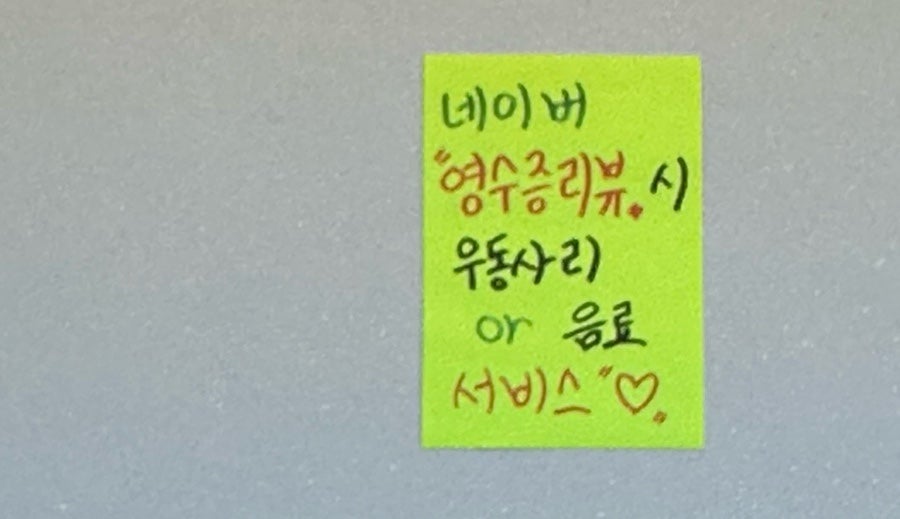 네이버
"영수증리뷰" 시
우동사리
or 음료
서비스 "♡"